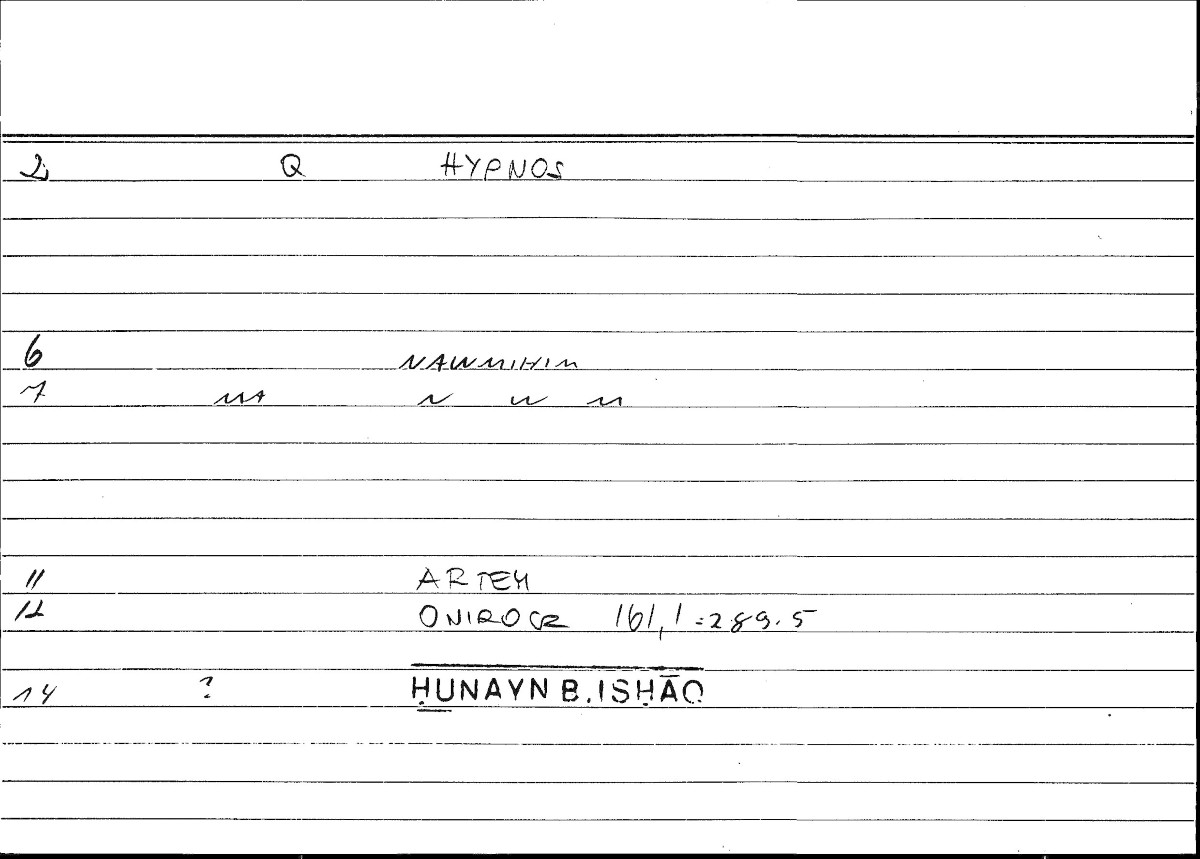 2 Q HYPNOS
6 NAWMIHIM
7 MA N W M
11 ARTEM
12 ONIROCR 161,1=289.5
14 ? ḤUNAYN B.ISḤĀQ